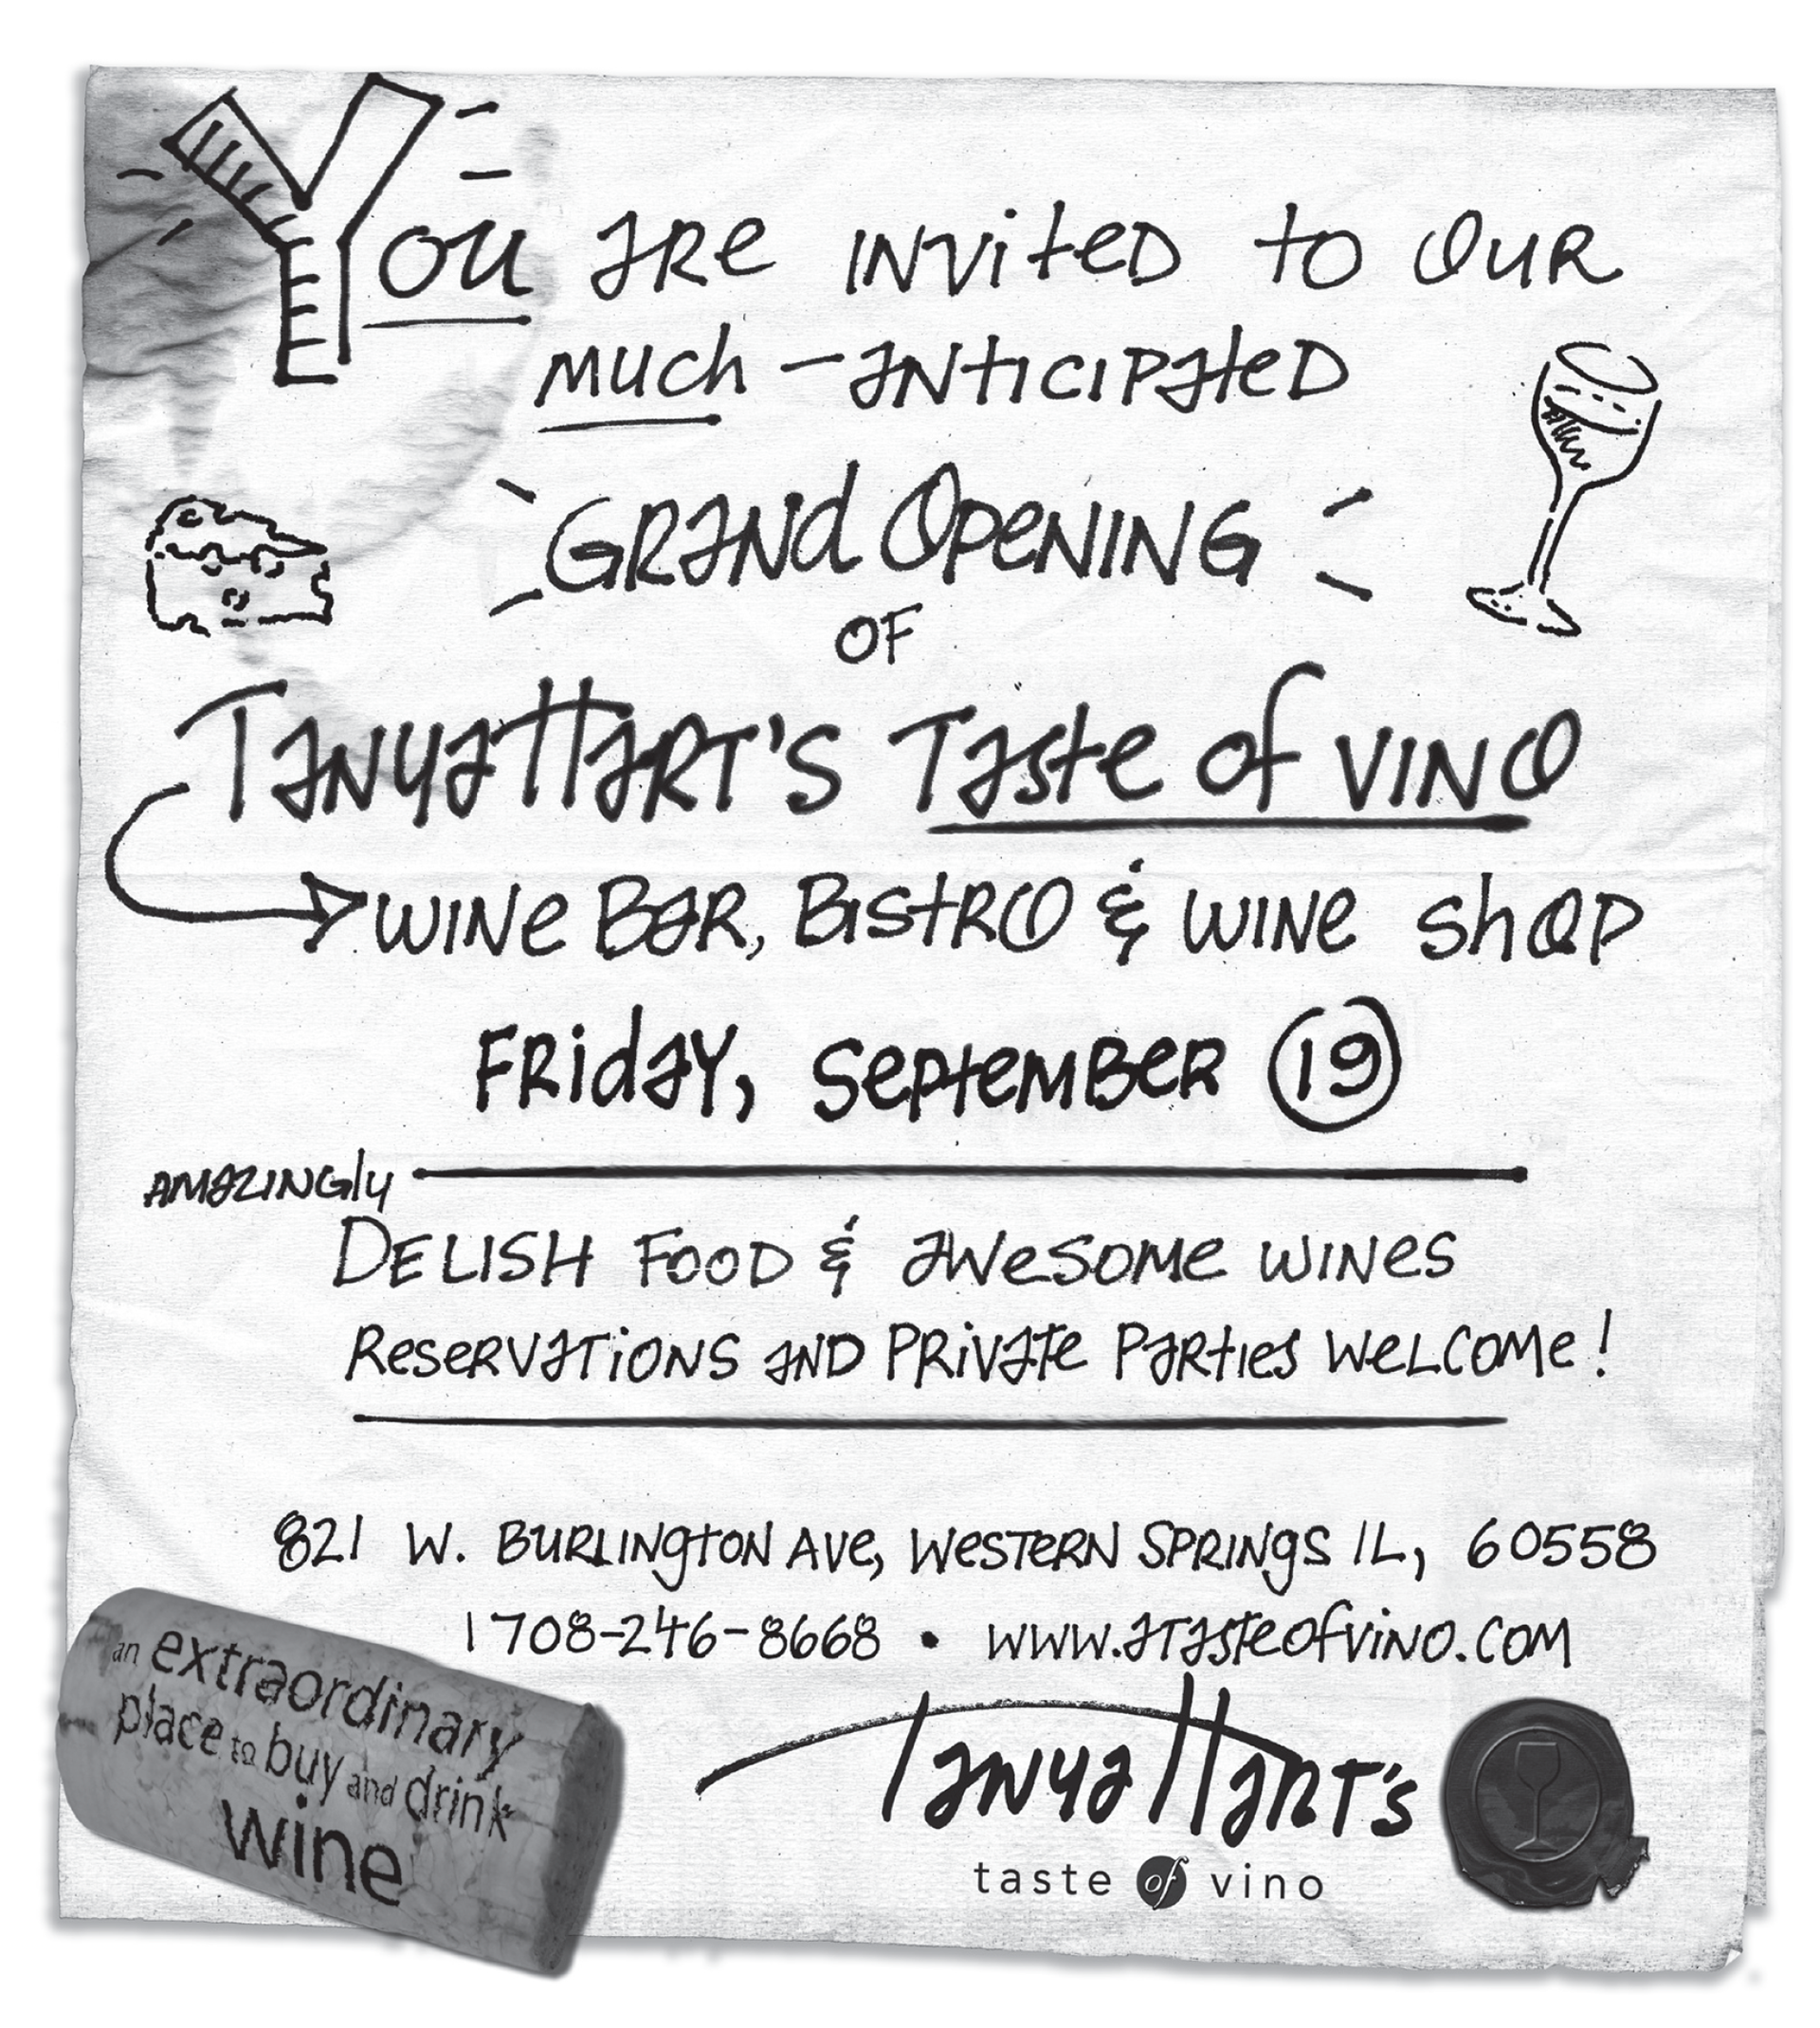 You are invited to our
much-anticipated
Grand Opening
of
Tanya Hart's Taste of Vino
Wine Bar, Bistro & Wine Shop
Friday, September 19
Amazingly
Delish Food & awesome wines
Reservations and Private Parties Welcome!
821 W. Burlington Ave, Western Springs IL, 60558
1 708-246-8668 • www.atasteofvino.com
an extraordinary
place to buy and drink
wine
Tanya Hart's
taste of vino